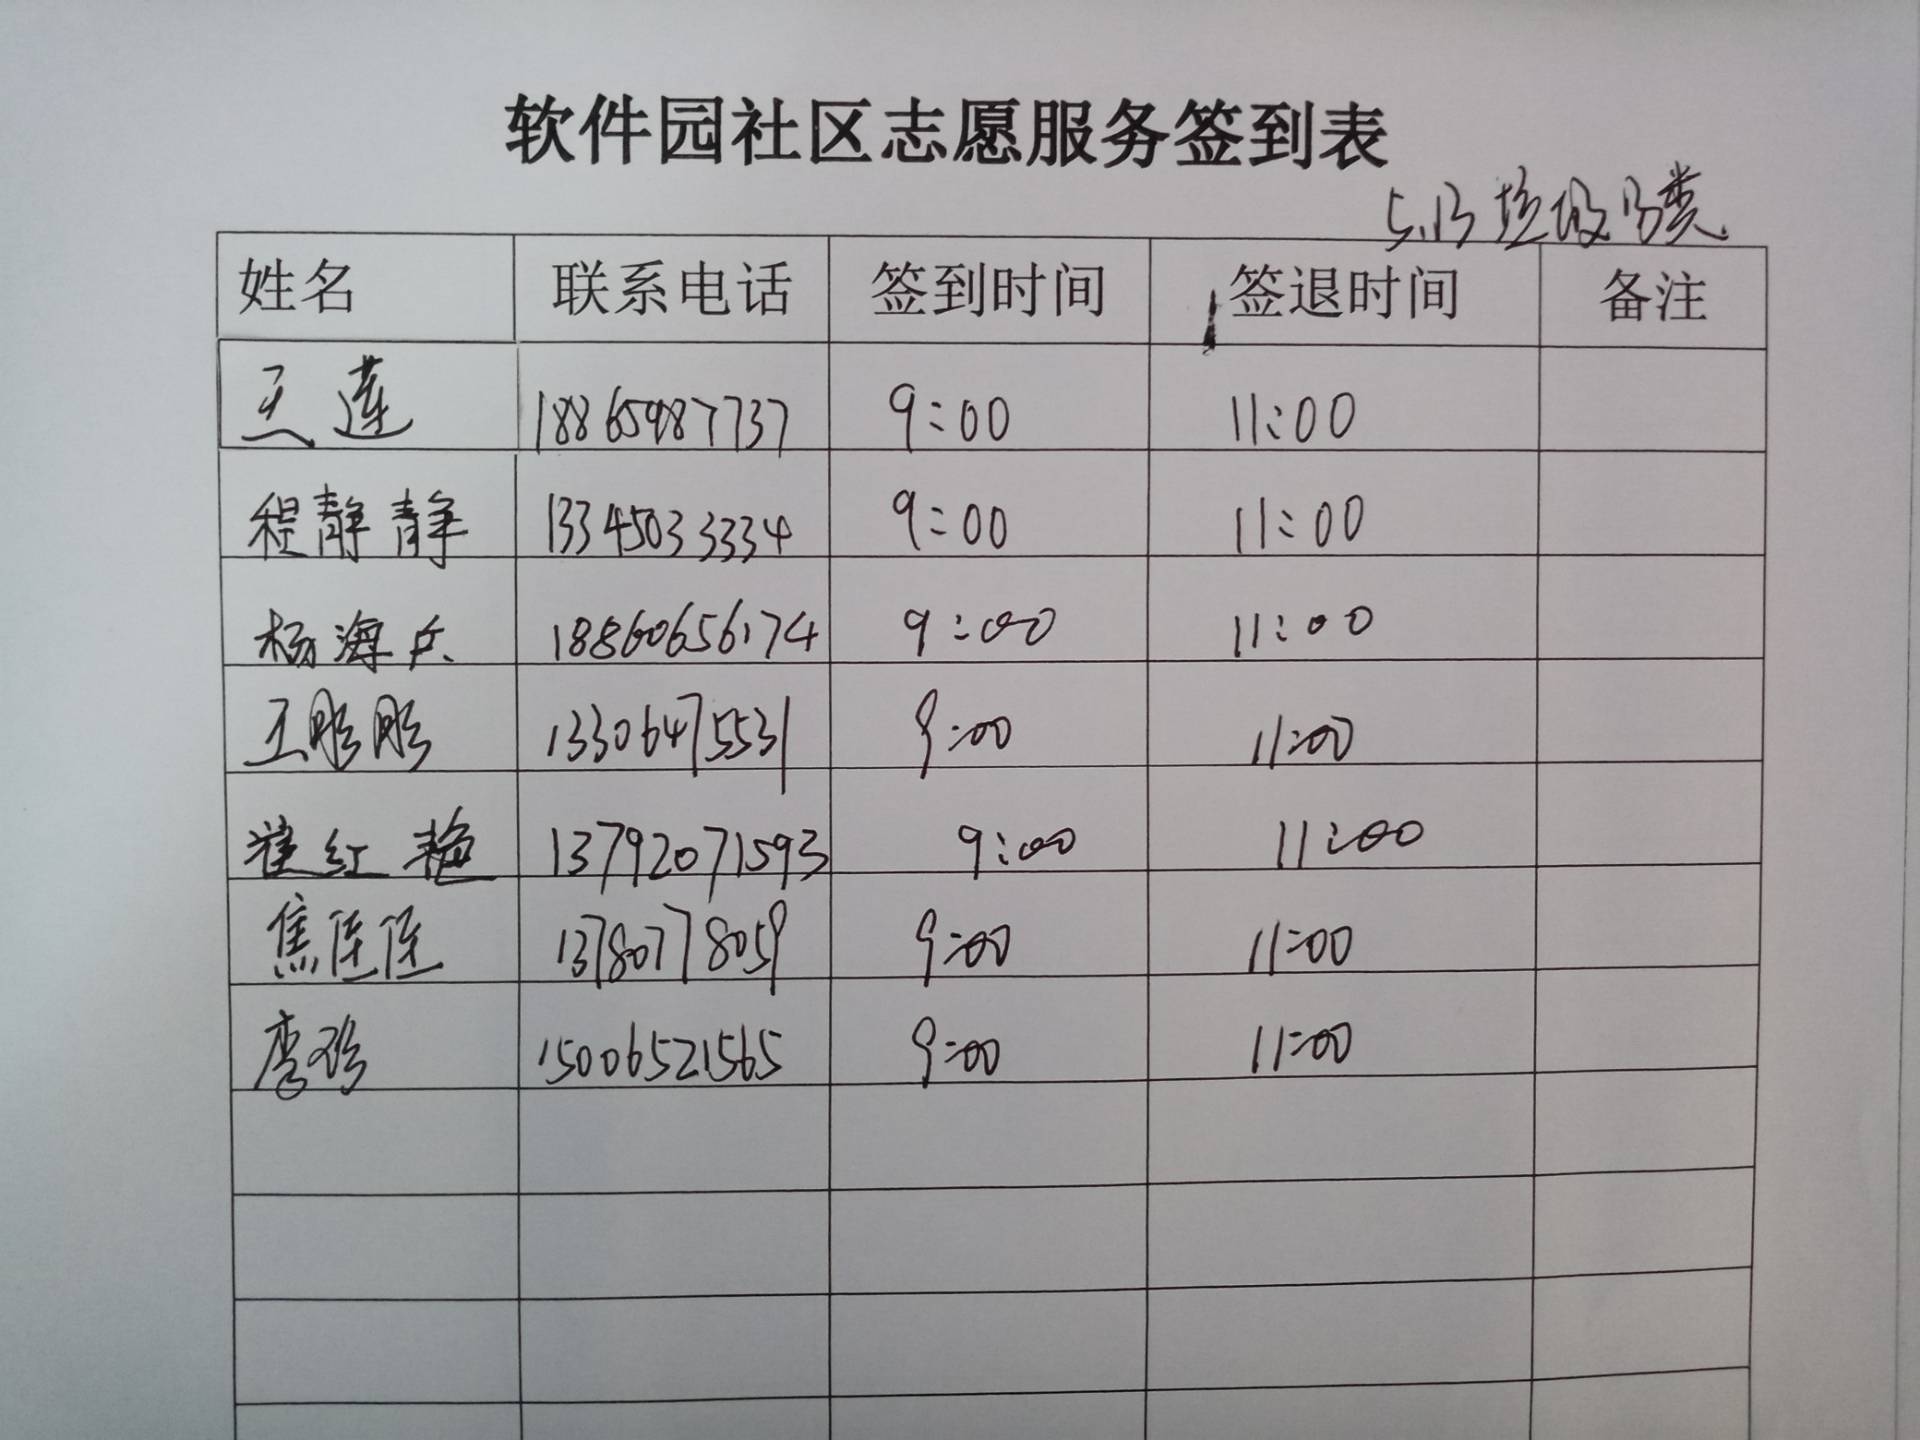 软件园社区志愿服务签到表
5.13 垃圾分类
姓名 联系电话 签到时间 签退时间 备注
王莲 18865987737 9:00 11:00
程静静 13345033334 9:00 11:00
杨海兵 18860656174 9:00 11:00
王彤彤 13306475531 9:00 11:00
崔红艳 13792071593 9:00 11:00
焦佳佳 13780778059 9:00 11:00
李珍 15006521565 9:00 11:00